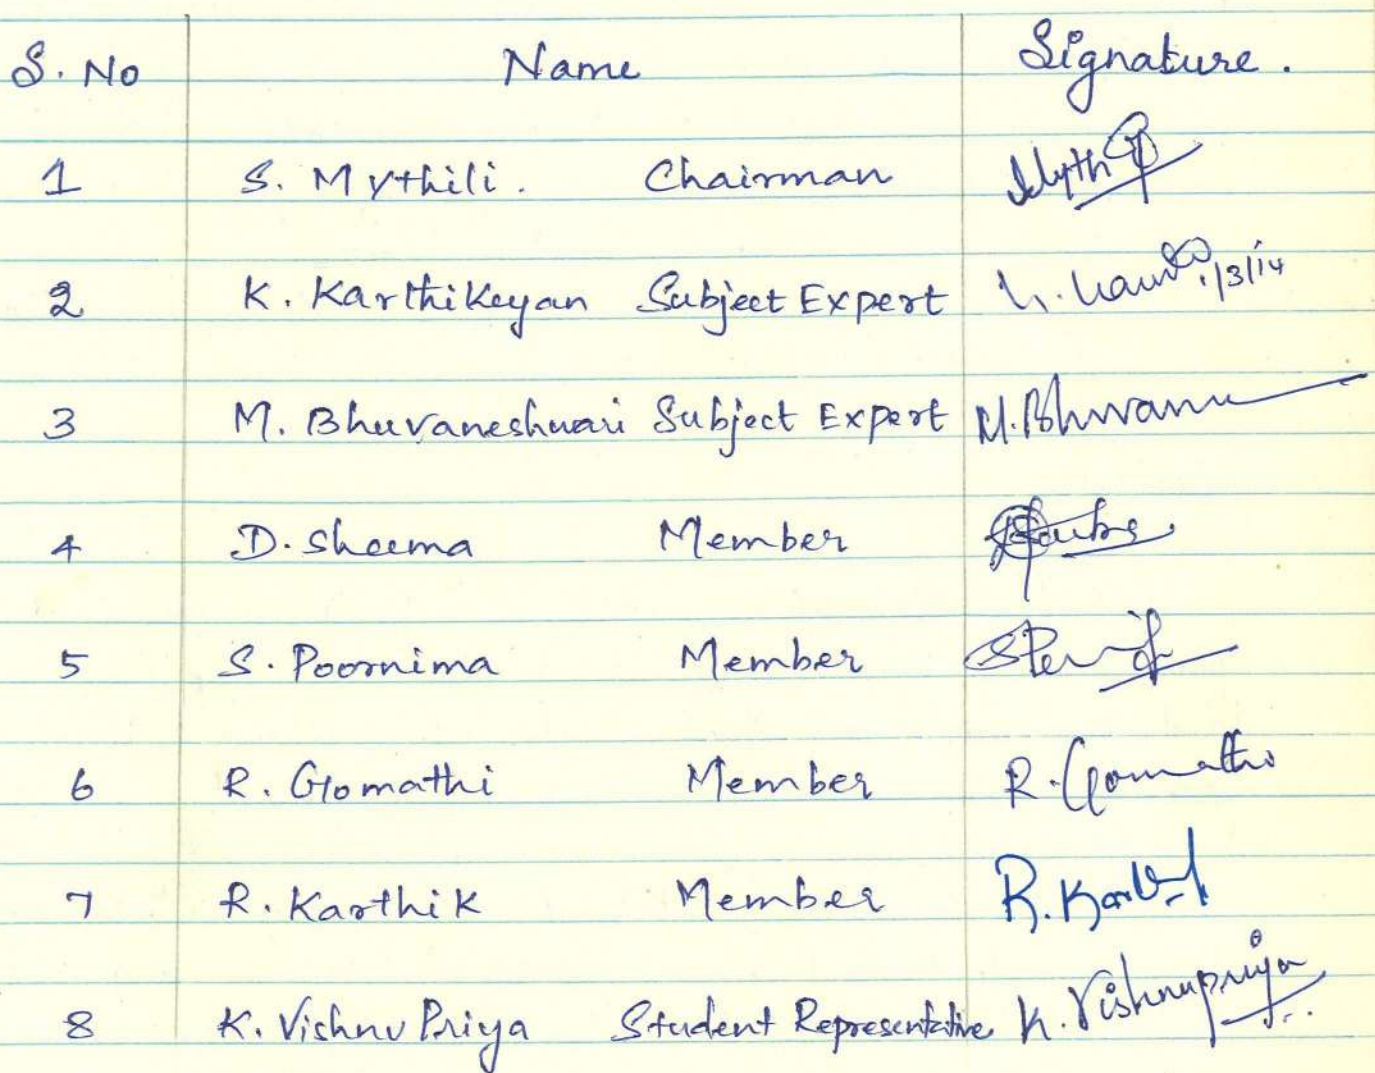 S. No Name Signature.
1 S. Mythili. Chairman
2 K. Karthikeyan Subject Expert 1/3/14
3 M. Bhuvaneshwari Subject Expert M. Bhuvane
4 D. Sheema Member
5 S. Poornima Member
6 R. Gomathi Member R. Gomathi
7 R. Karthik Member R. Karthik
8 K. Vishnu Priya Student Representative K. Vishnupriya